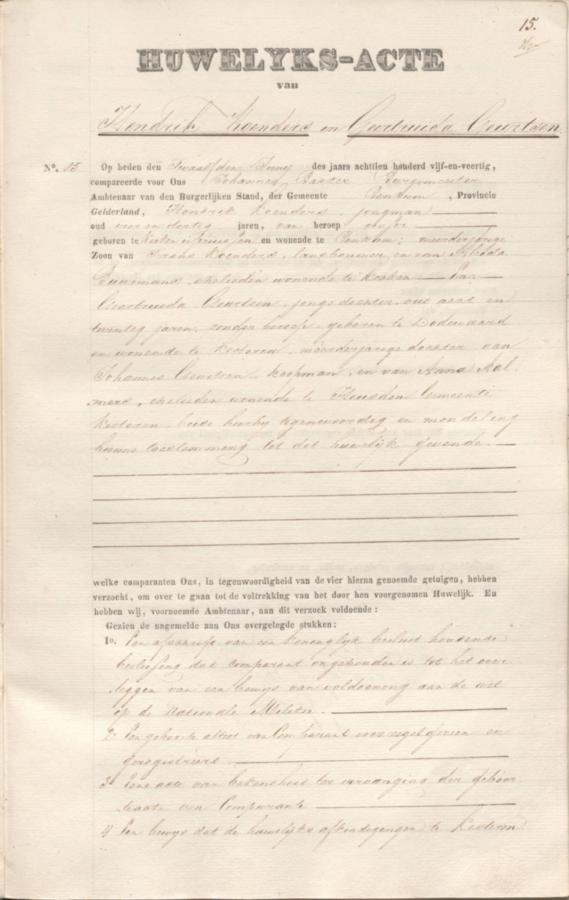 15.
HUWELYKS-ACTE
van
Hendrik Roenders en Geertruida Geurtsen
No. 15
Op heden den Twaalfden Juny des jaars achttien honderd vijf-en-veertig,
compareerde voor Ons Johannes Burgemeester
Ambtenaar van den Burgerlijken Stand, der Gemeente , Provincie
Gelderland, Hendrik Roenders, jongman
oud en dertig jaren, van beroep
geboren te en wonende te meerderjarige
Zoon van Roenders, landbouwer, en van
echelieden wonende te
Geertruida Geurtsen, jonge dochter, oud acht en
twintig jaren, zonder beroep, geboren te Dodewaard
en wonende te Kesteren, meerderjarige dochter van
Johannes Geurtsen, koopman, en van Anna Aal
mers, echelieden wonende te Heusden Gemeente
Kesteren beide hierby tegenwoordig en mondeling
hunne toestemming tot dit huwelijk gevende
welke comparanten Ons, in tegenwoordigheid van de vier hierna genoemde getuigen, hebben
verzocht, om over te gaan tot de voltrekking van het door hen voorgenomen Huwelijk. En
hebben wij, voornoemde Ambtenaar, aan dit verzoek voldoende:
Gezien de nagemelde aan Ons overgelegde stukken:
1o. Een van een Koninglyk besluit houdende
beslissing dat comparant ongehouden is tot het over
leggen van een bewys van voldoening aan de wet
op de Nationale Militie.
2o Een geboorte van Comparant en
geregistreerd.
3o Eene acte van bekendheid ter vervanging der geboor
teacte van Comparante
4 Een bewys dat de huwelyks afkondigingen te Kesteren